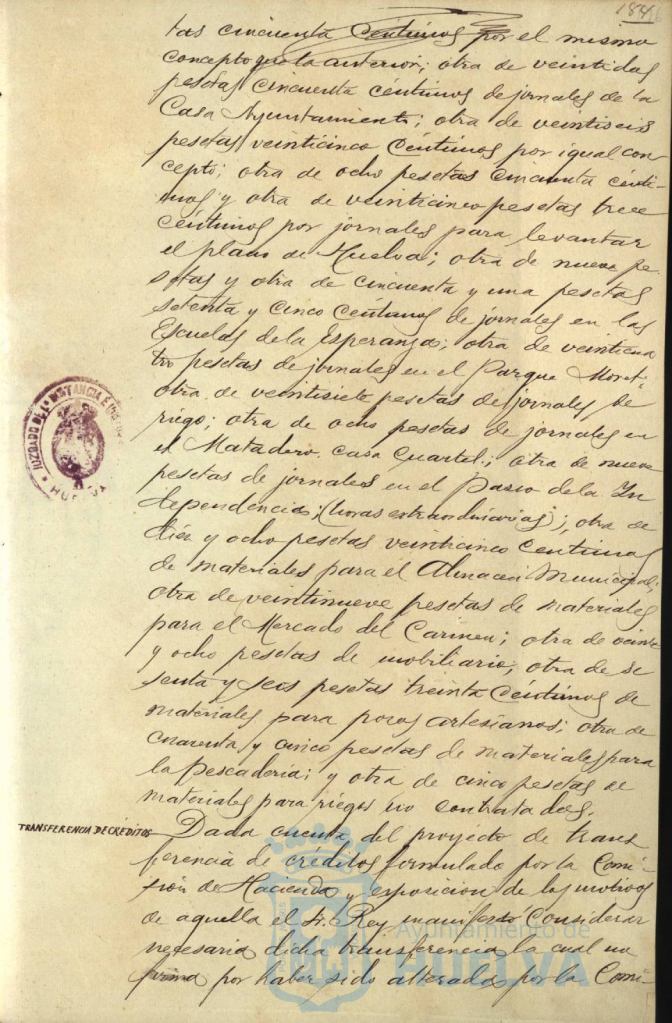 184
tas cincuenta centimos por el mismo
concepto que la anterior; otra de veintidos
pesetas cincuenta centimos de jornales de la
Casa Ayuntamiento; otra de veintiseis
pesetas veinticinco centimos por igual con
cepto; otra de ocho pesetas cincuenta centi-
mos y otra de veinticinco pesetas trece
centimos por jornales para levantar
el plano de Huelva; otra de nueve pe-
setas y otra de cincuenta y una pesetas
setenta y cinco centimos de jornales en las
Escuelas de la Esperanza; otra de veinticua
tro pesetas de jornales en el Parque Moret;
otra de veintisiete pesetas de jornales de
riego; otra de ocho pesetas de jornales en
el Matadero casa cuartel; otra de nueve
pesetas de jornales en el Paseo de la In
dependencia; (horas extraordinarias); otra de
diez y ocho pesetas veinticinco centimos
de materiales para el Almacen Municipal;
otra de veintinueve pesetas de materiales
para el Mercado del Carmen; otra de veinte
y ocho pesetas de mobiliario; otra de se
senta y seis pesetas treinta centimos de
materiales para pozos artesianos; otra de
cuarenta y cinco pesetas de materiales para
la pescaderia; y otra de cinco pesetas de
materiales para riegos no contratados.
TRANSFERENCIA DE CREDITOS
Dada cuenta del proyecto de trans
ferencia de créditos formulado por la Comi-
sión de Hacienda y exposicion de los motivos
de aquella el Sr. Rey manifestó considerar
necesaria dicha transferencia la cual no
firma por haber sido alterada por la Comi-
JUZGADO DE 1ª INSTANCIA E
HUELVA
Ayuntamiento de
HUELVA